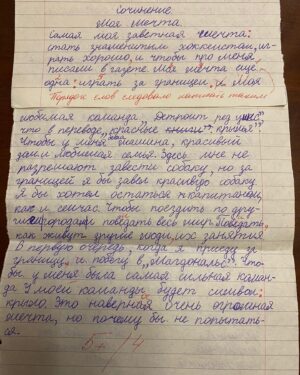 Сочинение
Моя мечта.
Самая моя заветная мечта:
стать знаменитым хоккеистом, иг-
рать хорошо, и чтобы про меня
писали в газете. Моя мечта еще
одна: играть за границей. Моя
Порядок слов следовало
любимая команда „Детройт ред
что в переводе „красные крылья".
Чтобы у меня была машина, красивый
дом и любимая семья. Здесь мне не
разрешают завести собаку, но за
границей я бы завёл красивую собаку
Я бы хотел остаться капитаном,
как и сейчас. Чтобы поездить по дру-
гим городам, повидать весь мир. Поведать,
как живут другие люди, их занятия
В первую очередь, когда я приеду за
границу, я пойду в „Магдональс". Что-
бы у меня была самая сильная коман-
да У моей команды будет символ:
крыло. Это наверная очень огромная
мечта, но почему бы не попытать-
ся.
5- / 4